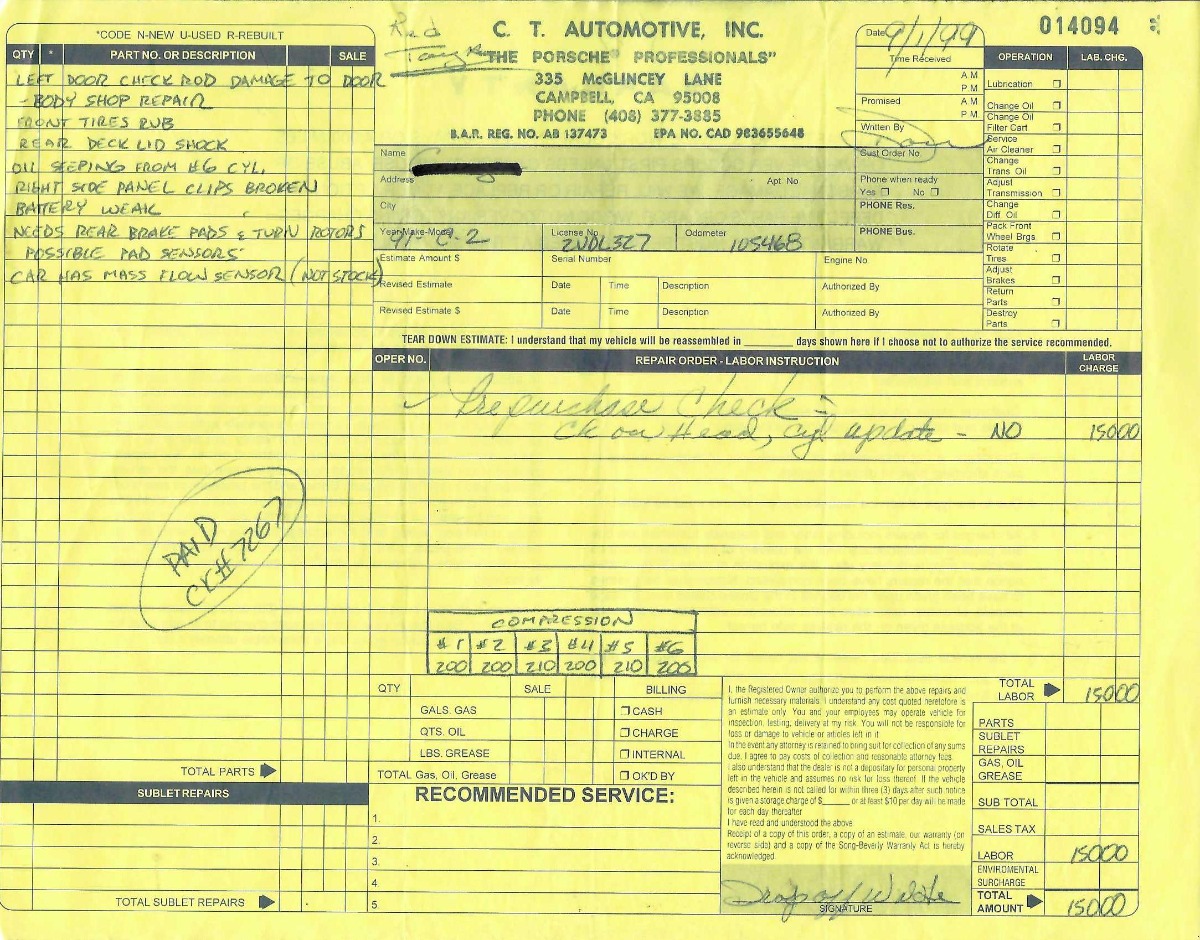 *CODE N-NEW U-USED R-REBUILT
QTY * PART NO. OR DESCRIPTION SALE
LEFT DOOR CHECK ROD DAMAGE TO DOOR
- BODY SHOP REPAIR
FRONT TIRES RUB
REAR DECK LID SHOCK
OIL SEEPING FROM #6 CYL.
RIGHT SIDE PANEL CLIPS BROKEN
BATTERY WEAK
NEEDS REAR BRAKE PADS & TURN ROTORS
POSSIBLE PAD SENSORS
CAR HAS MASS FLOW SENSOR (NOT STOCK)
PAID
CK# 7267
TOTAL PARTS
SUBLET REPAIRS
TOTAL SUBLET REPAIRS
Red
C. T. AUTOMOTIVE, INC.
"THE PORSCHE® PROFESSIONALS"
335 McGLINCEY LANE
CAMPBELL, CA 95008
PHONE (408) 377-3885
B.A.R. REG. NO. AB 137473 EPA NO. CAD 983655648
Date 9/1/99
014094
Time Received
A M
P M
Promised A M
P M
Written By
Cust Order No.
Name
Address Apt. No
City
Phone when ready
Yes No
PHONE Res.
PHONE Bus.
Year-Make-Model 91- C-2 License No 2NDL327 Odometer 105468
Estimate Amount $ Serial Number Engine No.
Revised Estimate Date Time Description Authorized By
Revised Estimate $ Date Time Description Authorized By
OPERATION LAB. CHG.
Lubrication
Change Oil
Change Oil
Filter Cart
Service
Air Cleaner
Change
Trans Oil
Adjust
Transmission
Change
Diff Oil
Pack Front
Wheel Brgs
Rotate
Tires
Adjust
Brakes
Return
Parts
Destroy
Parts
TEAR DOWN ESTIMATE: I understand that my vehicle will be reassembled in ________ days shown here if I choose not to authorize the service recommended.
OPER NO. REPAIR ORDER - LABOR INSTRUCTION LABOR CHARGE
✓ Prepurchase Check -
Ck on Head, Cyl update - NO 15000
COMPRESSION
#1 #2 #3 #4 #5 #6
200 200 210 200 210 200
QTY SALE BILLING
GALS. GAS CASH
QTS. OIL CHARGE
LBS. GREASE INTERNAL
TOTAL Gas, Oil, Grease OK'D BY
RECOMMENDED SERVICE:
1.
2.
3.
4.
5.
I, the Registered Owner authorize you to perform the above repairs and
furnish necessary materials. I understand any cost quoted heretofore is
an estimate only. You and your employees may operate vehicle for
inspection, testing, delivery at my risk. You will not be responsible for
loss or damage to vehicle or articles left in it.
In the event any attorney is retained to bring suit for collection of any sums
due, I agree to pay costs of collection and reasonable attorney fees.
I also understand that the dealer is not a depositary for personal property
left in the vehicle and assumes no risk for loss thereof. If the vehicle
described herein is not called for within three (3) days after such notice
is given a storage charge of $_____ or at least $10 per day will be made
for each day thereafter
I have read and understood the above
Receipt of a copy of this order, a copy of an estimate, our warranty (on
reverse side) and a copy of the Song-Beverly Warranty Act is hereby
acknowledged.
Drop off Write
SIGNATURE
TOTAL LABOR 15000
PARTS
SUBLET REPAIRS
GAS, OIL GREASE
SUB TOTAL
SALES TAX
LABOR 15000
ENVIROMENTAL SURCHARGE
TOTAL AMOUNT 15000